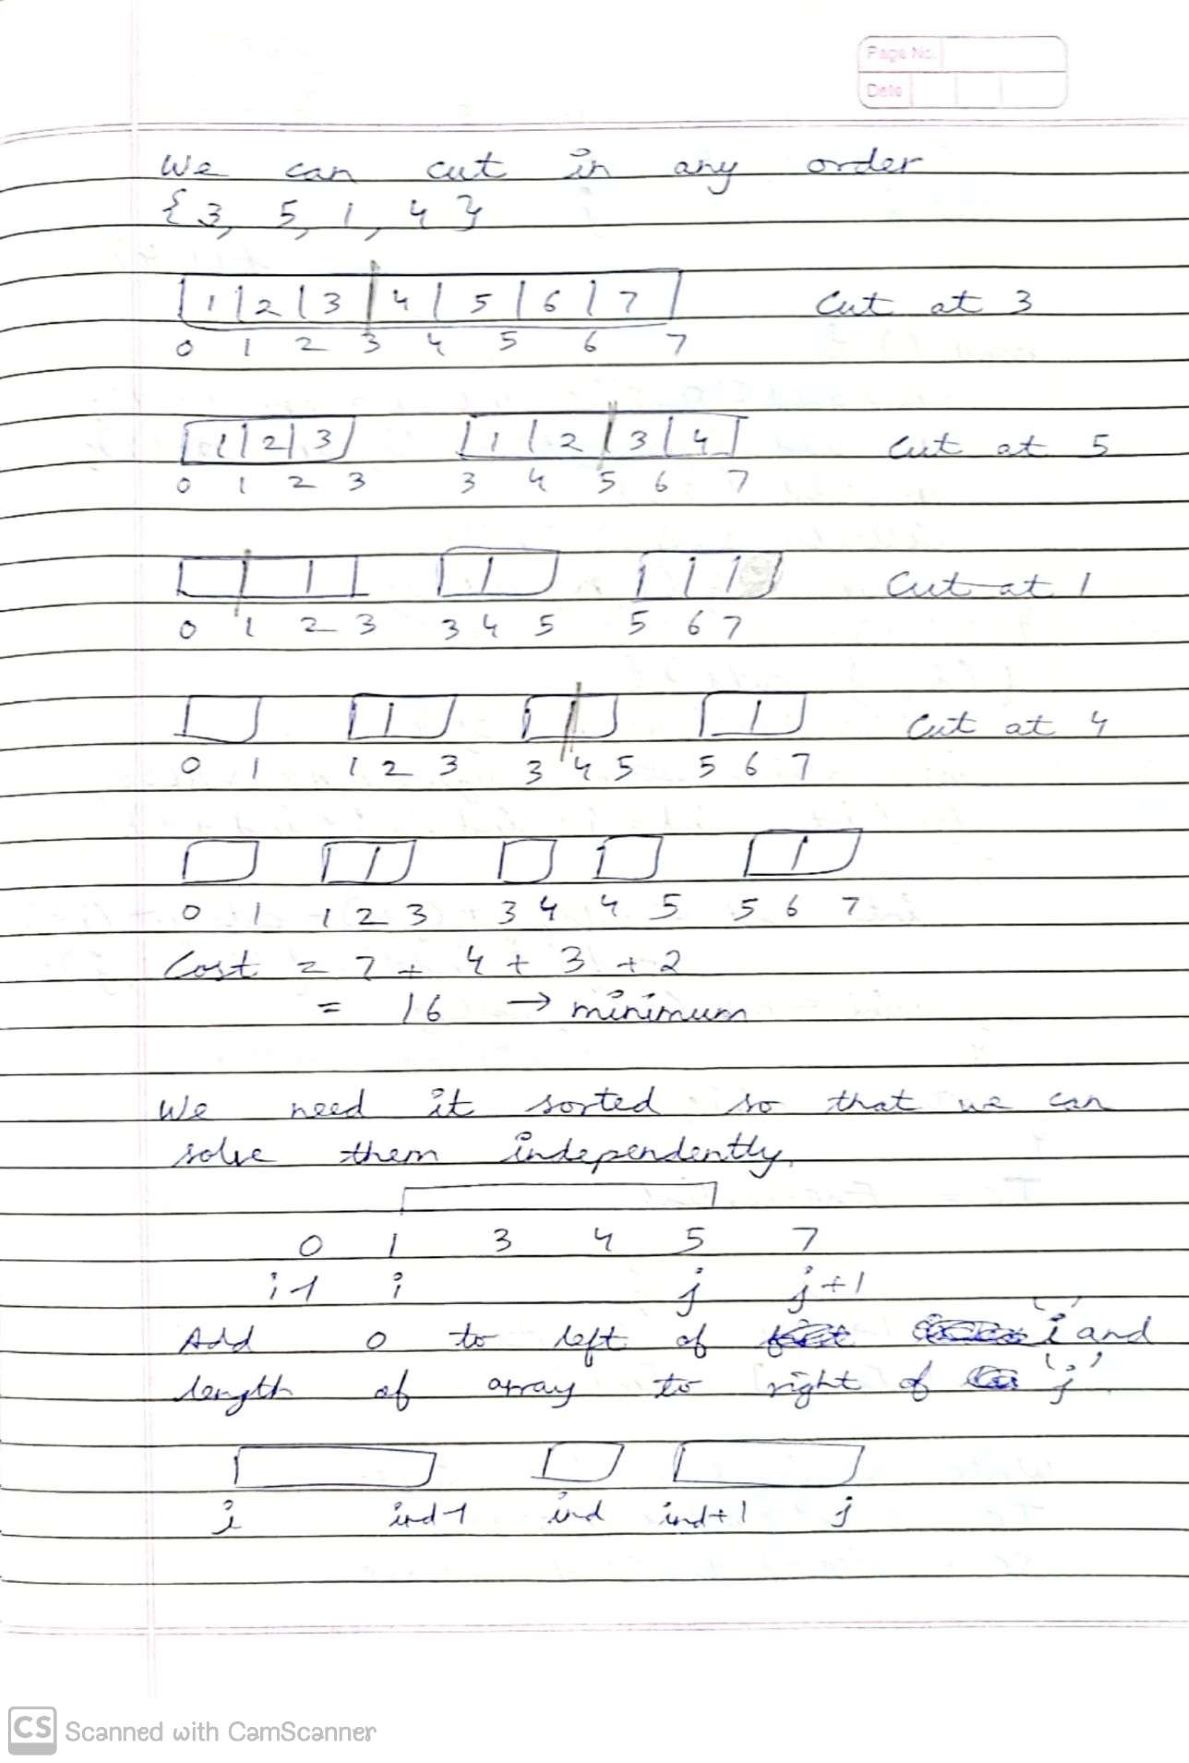 Page No.
Date
We can cut in any order
{ 3, 5, 1, 4 }
1 2 3 4 5 6 7 Cut at 3
0 1 2 3 4 5 6 7
1 2 3 1 2 3 4 Cut at 5
0 1 2 3 3 4 5 6 7
Cut at 1
0 1 2 3 3 4 5 5 6 7
Cut at 4
0 1 1 2 3 3 4 5 5 6 7
0 1 1 2 3 3 4 4 5 5 6 7
Cost = 7 + 4 + 3 + 2
= 16 → minimum
We need it sorted so that we can
solve them independently.
0 1 3 4 5 7
i-1 i j j+1
Add 0 to left of 'i' and
length of array to right of 'j'.
i ind-1 ind ind+1 j
CS Scanned with CamScanner